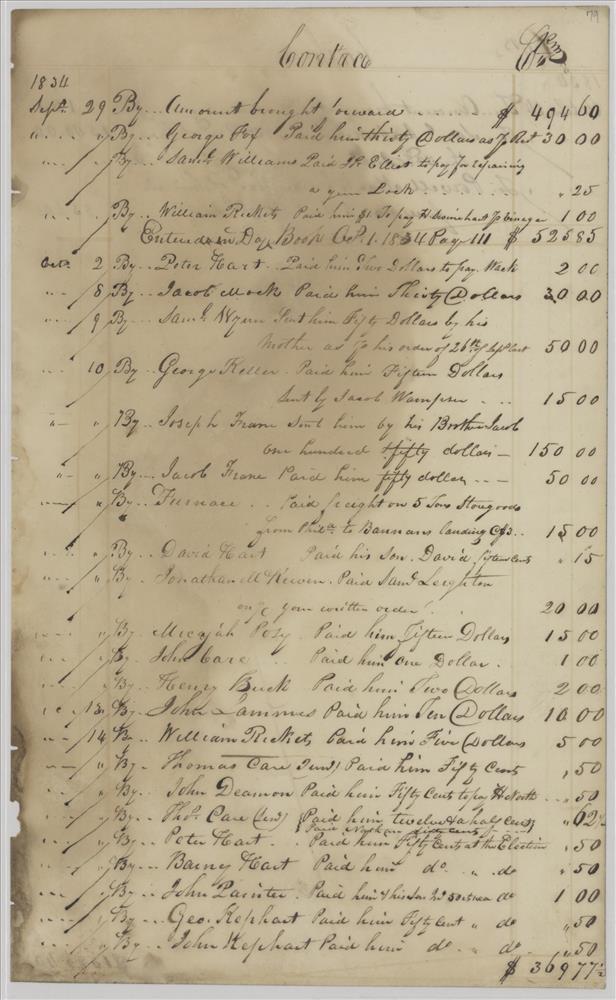 79
Contra Cr
1834
Sept. 29 By .. Amount brought forward $ 494 60
" " By .. George Fox Paid him thirty Dollars as pr Rct 30 00
" " By .. Saml. Williams Paid Elliot to pay for repairing
a gun Lock " 25
" " By .. William Rickets Paid him $1 To pay H for Vinegar 1 00
Entered in Day Book Oct. 1. 1834 Page 111 $ 525 85
Oct. 2 By .. Peter Hart .. Paid him Two Dollars to pay Wack 2 00
" 8 By .. Jacob Mock Paid him Thirty Dollars 30 00
" 9 By .. Saml. Wynn Sent him Fifty Dollars by his
Mother as pr his order of 26th of Sept last 50 00
" 10 By .. George Keller . Paid him Fifteen Dollars
Sent by Jacob Wampser .. 15 00
" " By .. Joseph Frane Sent him by his Brother Jacob
one hundred & fifty dollars 150 00
" " By .. Jacob Frane Paid him fifty dollars .. 50 00
" " By .. Furnace .. Paid freight on 5 Tons Stovegoods
from Phila. to Bannans landing @$3 .. 15 00
" " By .. David Hart Paid his Son David fifteen Cents " 15
" " By .. Jonathan McKiven . Paid Saml. Leighton
on your written order 20 00
" " By .. Micajah Posy . Paid him Fifteen Dollars 15 00
" " By .. John Care .. Paid him One Dollar . 1 00
" " By .. Henry Buck Paid him Two Dollars 2 00
" 13 By .. John Lammes Paid him Ten Dollars 10 00
" 14 By .. William Rickets Paid him Five Dollars 5 00
" " By .. Thomas Care Paid him Fifty Cents " 50
" " By .. John Deamon Paid him Fifty Cents to pay H North " 50
" " By .. Thos. Care Paid him twelve & a half Cents " 62½
Paid
" " By .. Peter Hart .. Paid him Fifty Cents at the Election " 50
" " By .. Barney Hart Paid him do. " do " 50
" " By .. John Painter . Paid him & his Son 50 cts ea do 1 00
" " By .. Geo. Kephart Paid him Fifty Cent " do " 50
" " By .. John Kephart Paid him do. " do. " 50
$ 369 77½